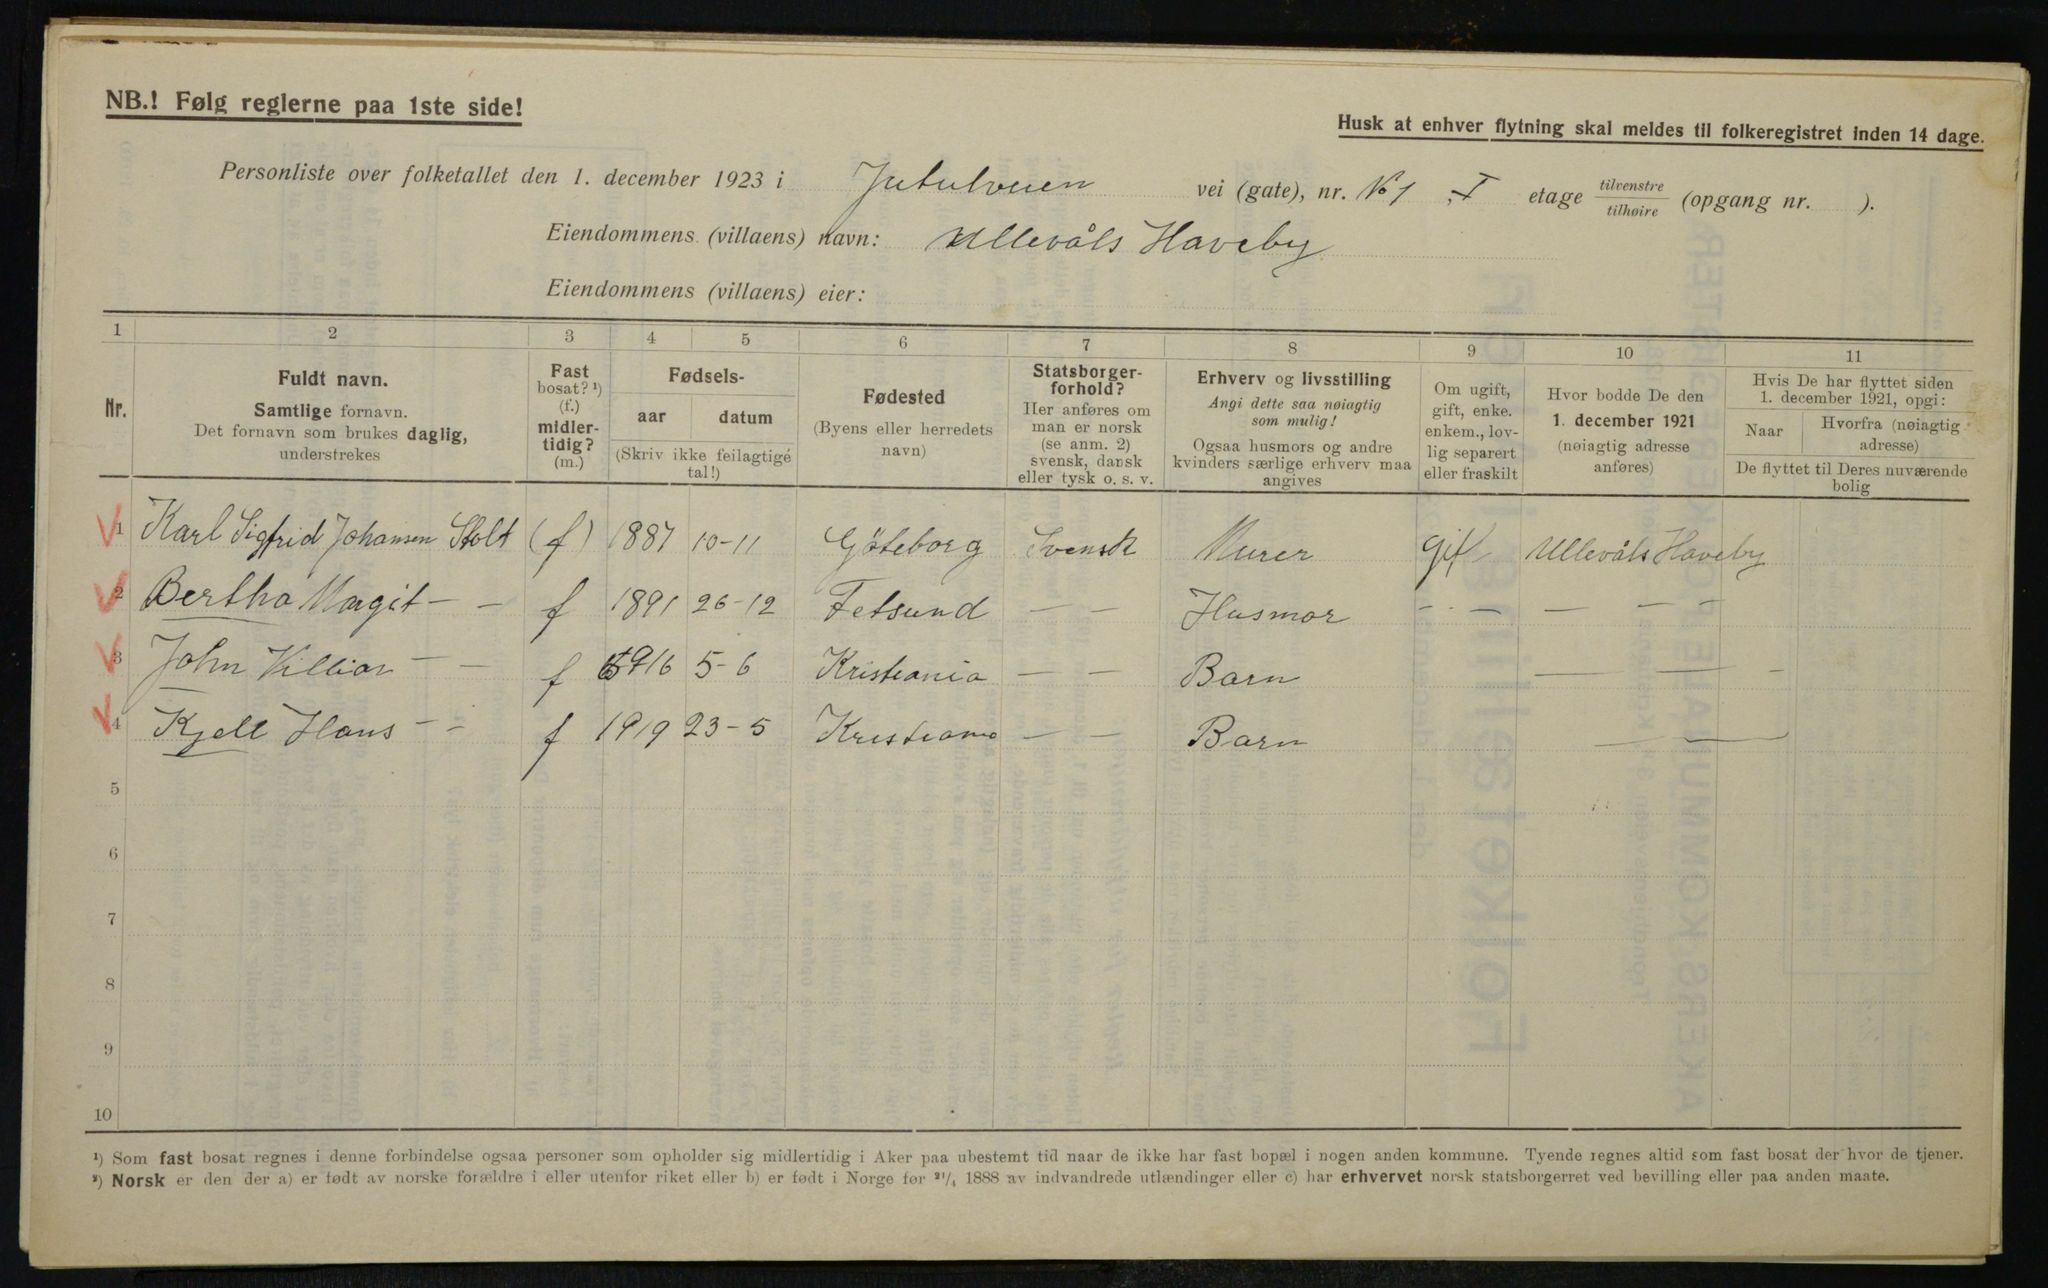 NB.! Følg reglerne paa 1ste side!
Husk at enhver flytning skal meldes til folkeregistret inden 14 dage.
Personliste over folketallet den 1. december 1923 i Jutulveien vei (gate), nr. No 1, I etage tilvenstre / tilhøire (opgang nr. ).
Eiendommens (villaens) navn: Ullevåls Haveby
Eiendommens (villaens) eier:
1 2 3 4 5 6 7 8 9 10 11
Nr.
Fuldt navn.
Samtlige fornavn.
Det fornavn som brukes daglig,
understrekes
Fast
bosat? ¹)
(f.)
midler-
tidig?
(m.)
Fødsels-
aar datum
(Skriv ikke feilagtige
tal!)
Fødested
(Byens eller herredets
navn)
Statsborger-
forhold?
Her anføres om
man er norsk
(se anm. 2)
svensk, dansk
eller tysk o. s. v.
Erhverv og livsstilling
Angi dette saa nøiagtig
som mulig!
Ogsaa husmors og andre
kvinders særlige erhverv maa
angives
Om ugift,
gift, enke.
enkem., lov-
lig separert
eller fraskilt
Hvor bodde De den
1. december 1921
(nøiagtig adresse
anføres)
Hvis De har flyttet siden
1. december 1921, opgi:
Naar
Hvorfra (nøiagtig
adresse)
De flyttet til Deres nuværende
bolig
1 Karl Sigfrid Johansen Stolt (f) 1887 10-11 Göteborg Svensk Murer gift Ullevåls Haveby
2 Bertha Margit — — f 1891 26-12 Fetsund — — Husmor — — — — —
3 John Villiar — — f 1916 5-6 Kristiania — — Barn — — —
4 Kjell Hans — — f 1919 23-5 Kristiania — — Barn — —
5
6
7
8
9
10
¹) Som fast bosat regnes i denne forbindelse ogsaa personer som opholder sig midlertidig i Aker paa ubestemt tid naar de ikke har fast bopæl i nogen anden kommune. Tyende regnes altid som fast bosat der hvor de tjener.
²) Norsk er den der a) er født av norske forældre i eller utenfor riket eller b) er født i Norge før 21/4 1888 av indvandrede utlændinger eller c) har erhvervet norsk statsborgerret ved bevilling eller paa anden maate.